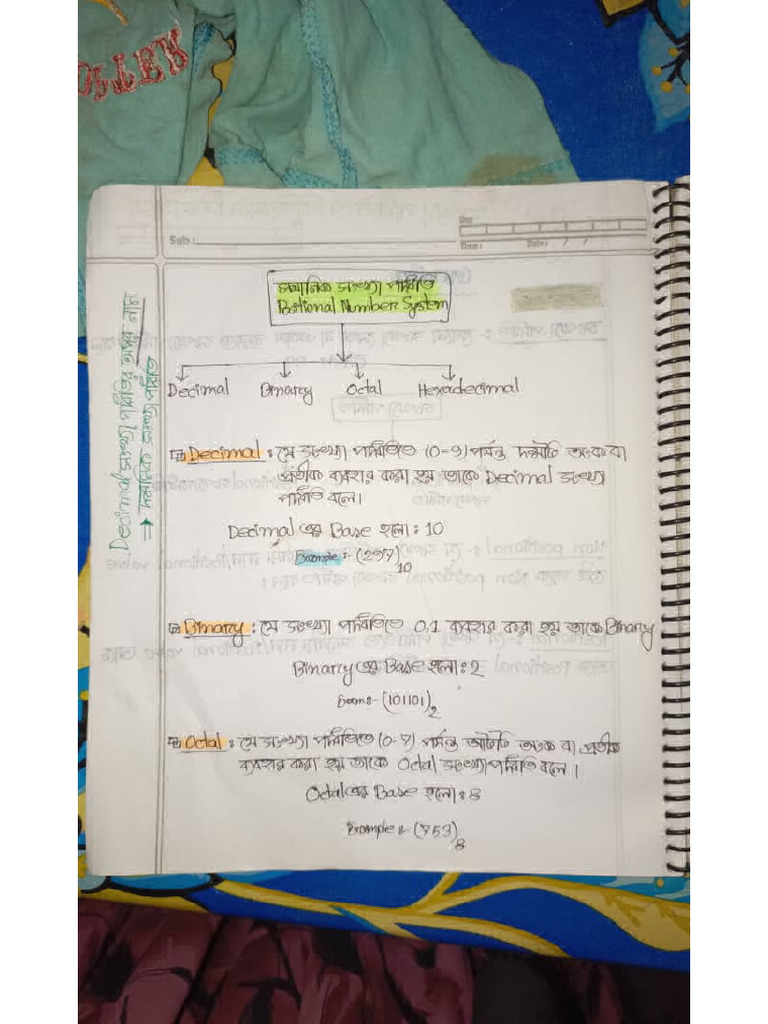 Sub :
Time :
Date : / /
স্থানিক সংখ্যা পদ্ধতি
Positional Number System
Decimal Binary Octal Hexadecimal
Decimal সংখ্যা পদ্ধতির অপর নাম
⇒ দশমিক সংখ্যা পদ্ধতি
Decimal : যে সংখ্যা পদ্ধতিতে (0-9) পর্যন্ত দশটি অংক বা
প্রতীক ব্যবহার করা হয় তাকে Decimal সংখ্যা
পদ্ধতি বলে।
Decimal এর Base হলো: 10
Example :- (297)10
Binary : যে সংখ্যা পদ্ধতিতে 0,1 ব্যবহার করা হয় তাকে Binary
Binary এর Base হলো: 2
Exam :- (101101)2
Octal : যে সংখ্যা পদ্ধতিতে (0-7) পর্যন্ত আটটি অংক বা প্রতীক
ব্যবহার করা হয় তাকে Octal সংখ্যা পদ্ধতি বলে।
Octal এর Base হলো: 8
Example :- (753)8